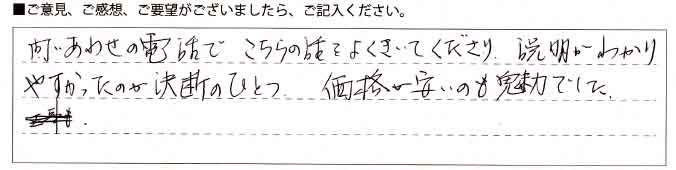 ■ご意見、ご感想、ご要望がございましたら、ご記入ください。
問いあわせの電話で こちらの話をよくきいてくださり、説明がわかり
やすかったのが決断のひとつ. 価格が安いのも魅力でした.